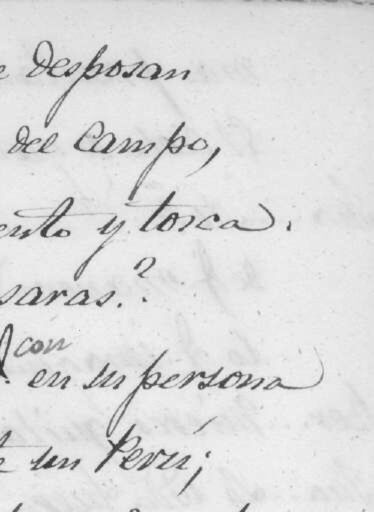 e desposan
del Campo,
ento y tosca.
saras.?
con
en su persona
e un Perú;